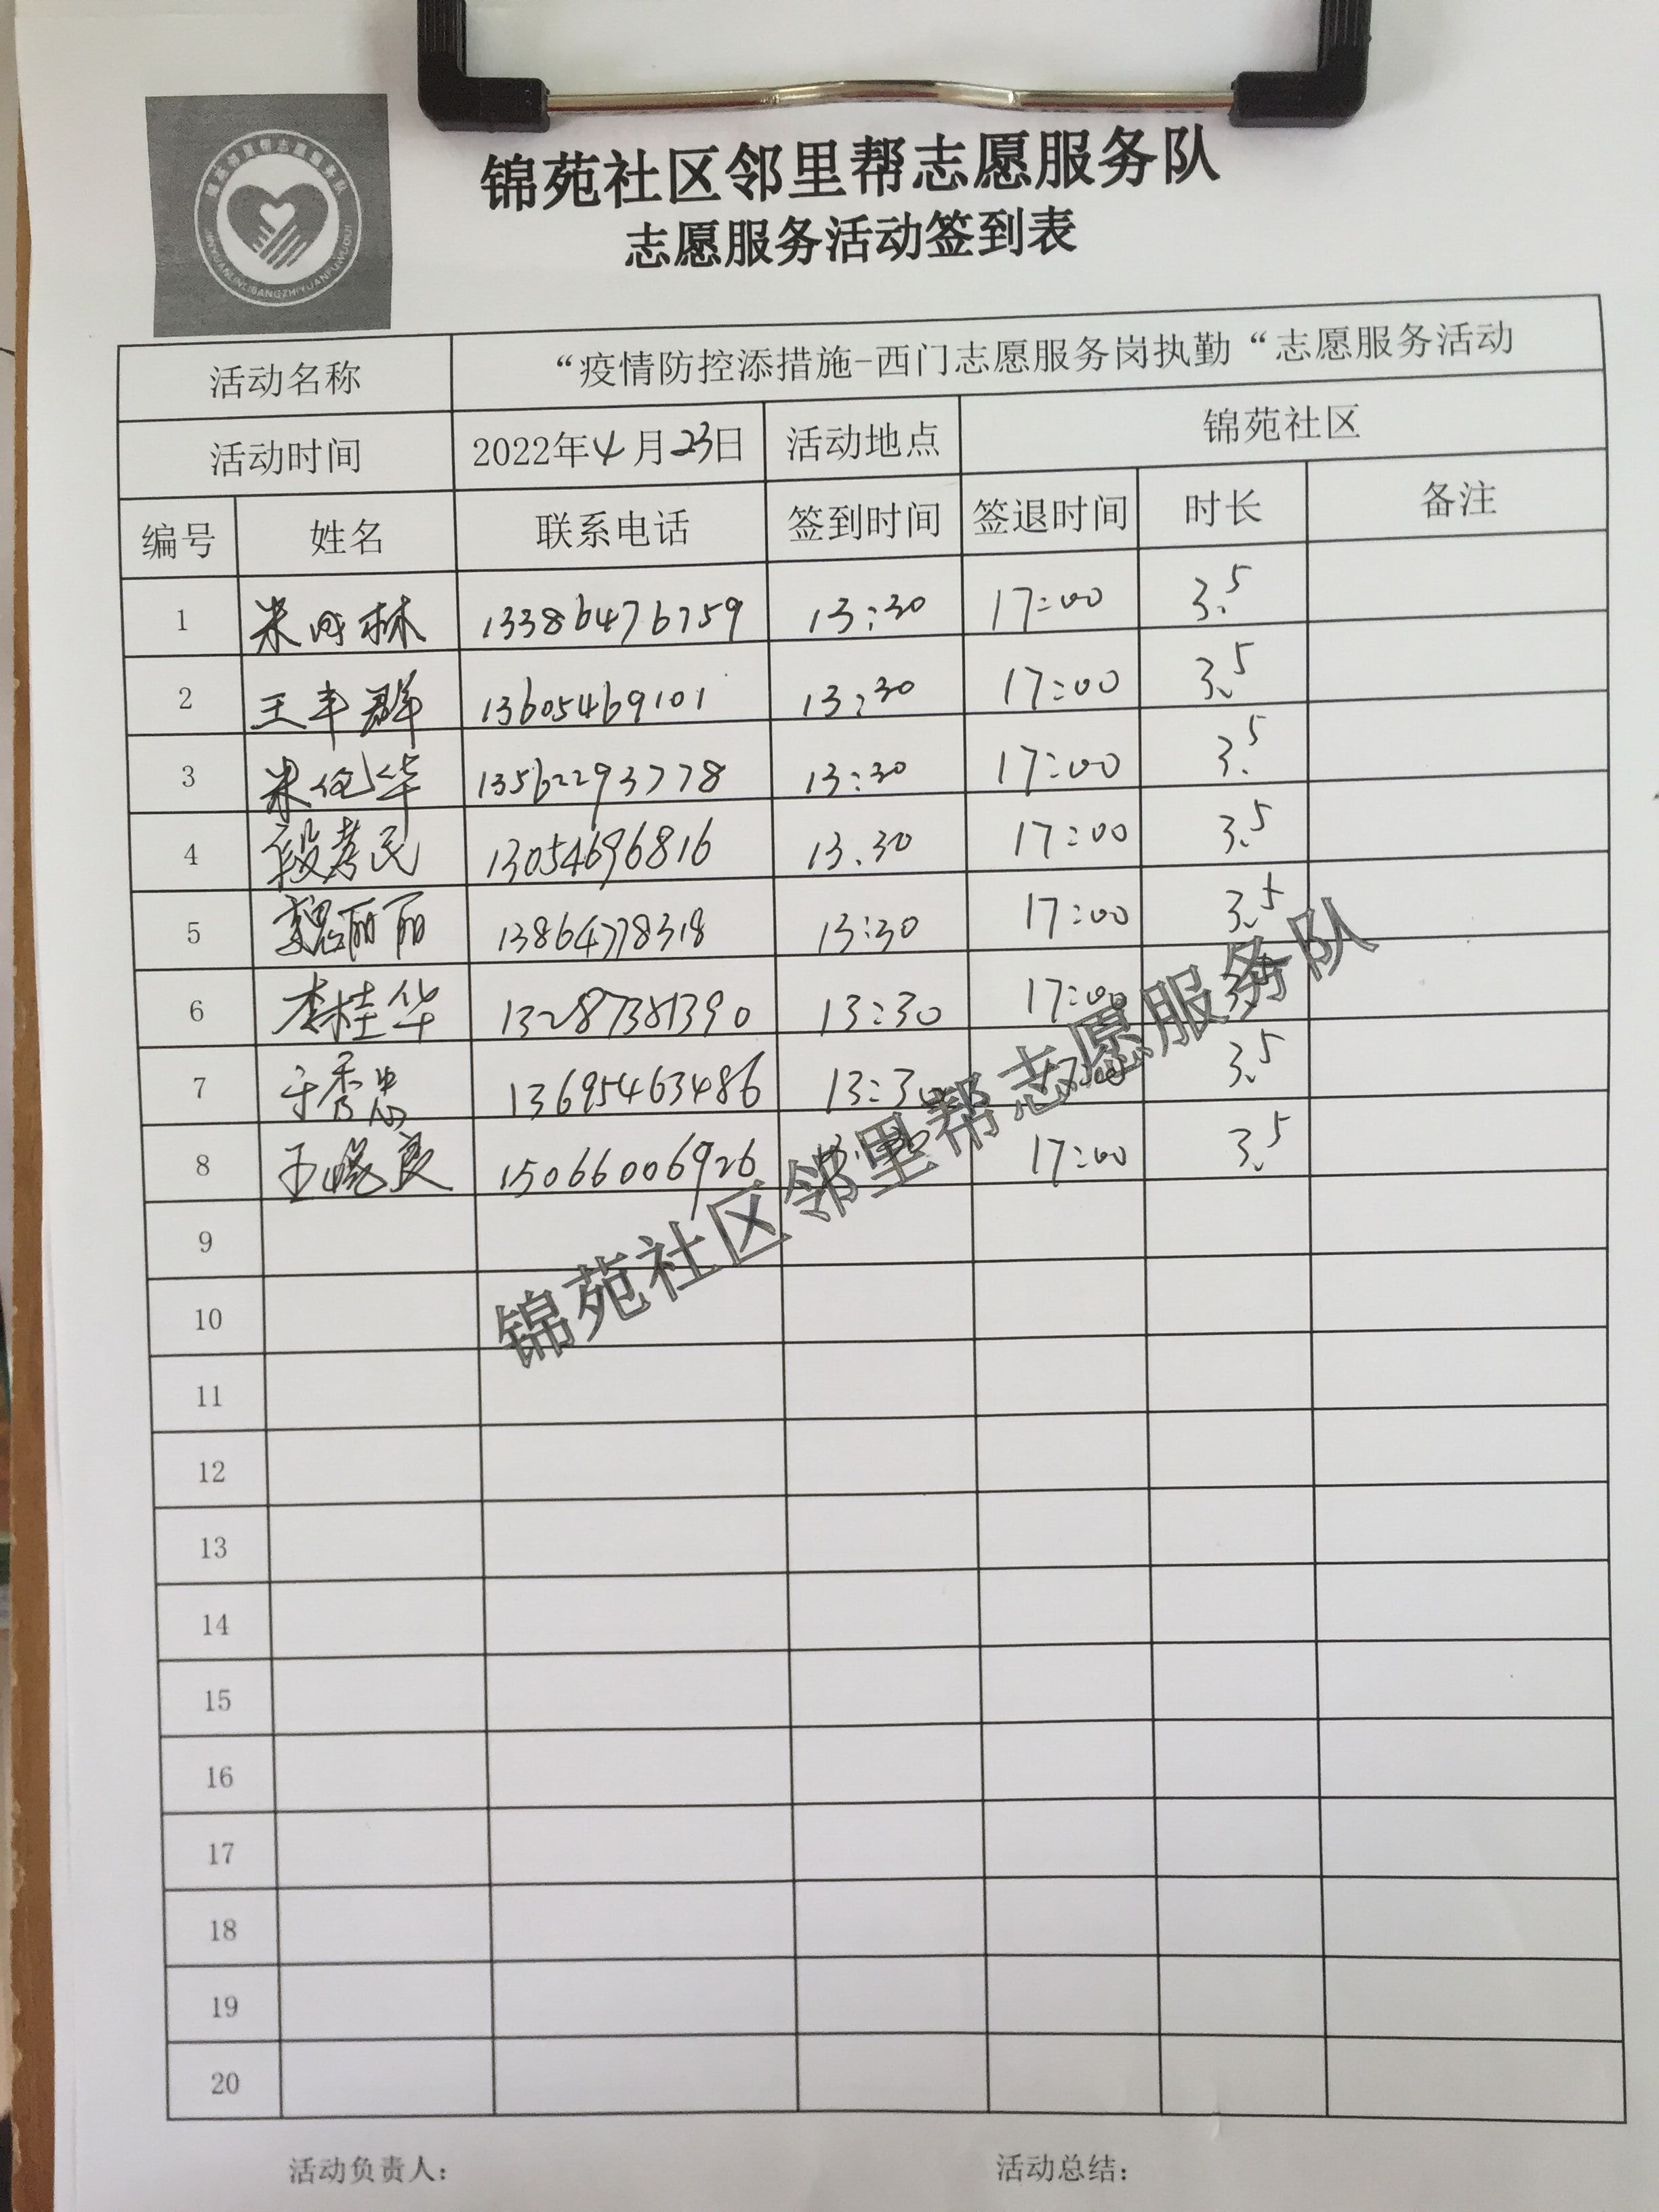 锦苑邻里帮志愿服务队
JINYUANLINLIBANGZHIYUANFUWUDUI
锦苑社区邻里帮志愿服务队
志愿服务活动签到表
活动名称 “疫情防控添措施-西门志愿服务岗执勤“志愿服务活动
活动时间 2022年4月23日 活动地点 锦苑社区
编号 姓名 联系电话 签到时间 签退时间 时长 备注
1 林 13386476759 13:30 17:00 3.5
2 王丰群 13605469101 13:30 17:00 3.5
3 华 13562293778 13:30 17:00 3.5
4 段孝民 13054696816 13.30 17:00 3.5
5 魏丽丽 13864778318 13:30 17:00 3.5
6 李桂华 13287381390 13:30 17:00 3.5
7 于秀忠 13695463486 13:30 17:00 3.5
8 王晓良 15066006926 13:30 17:00 3.5
9
10
11
12
13
14
15
16
17
18
19
20
锦苑社区邻里帮志愿服务队
活动负责人： 活动总结：